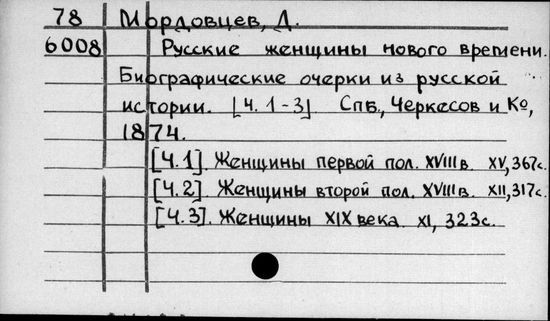 78 Мордовцев, Д.
6008 Русские женщины нового времени.
Биографические очерки из русской
истории. [Ч. 1-3] Спб., Черкесов и К°,
1874.
[Ч.1]. Женщины первой пол. XVIII в. XV, 367с.
[Ч.2]. Женщины второй пол. XVIII в. XII, 317с.
[Ч.3]. Женщины XIX века. XI, 323с.